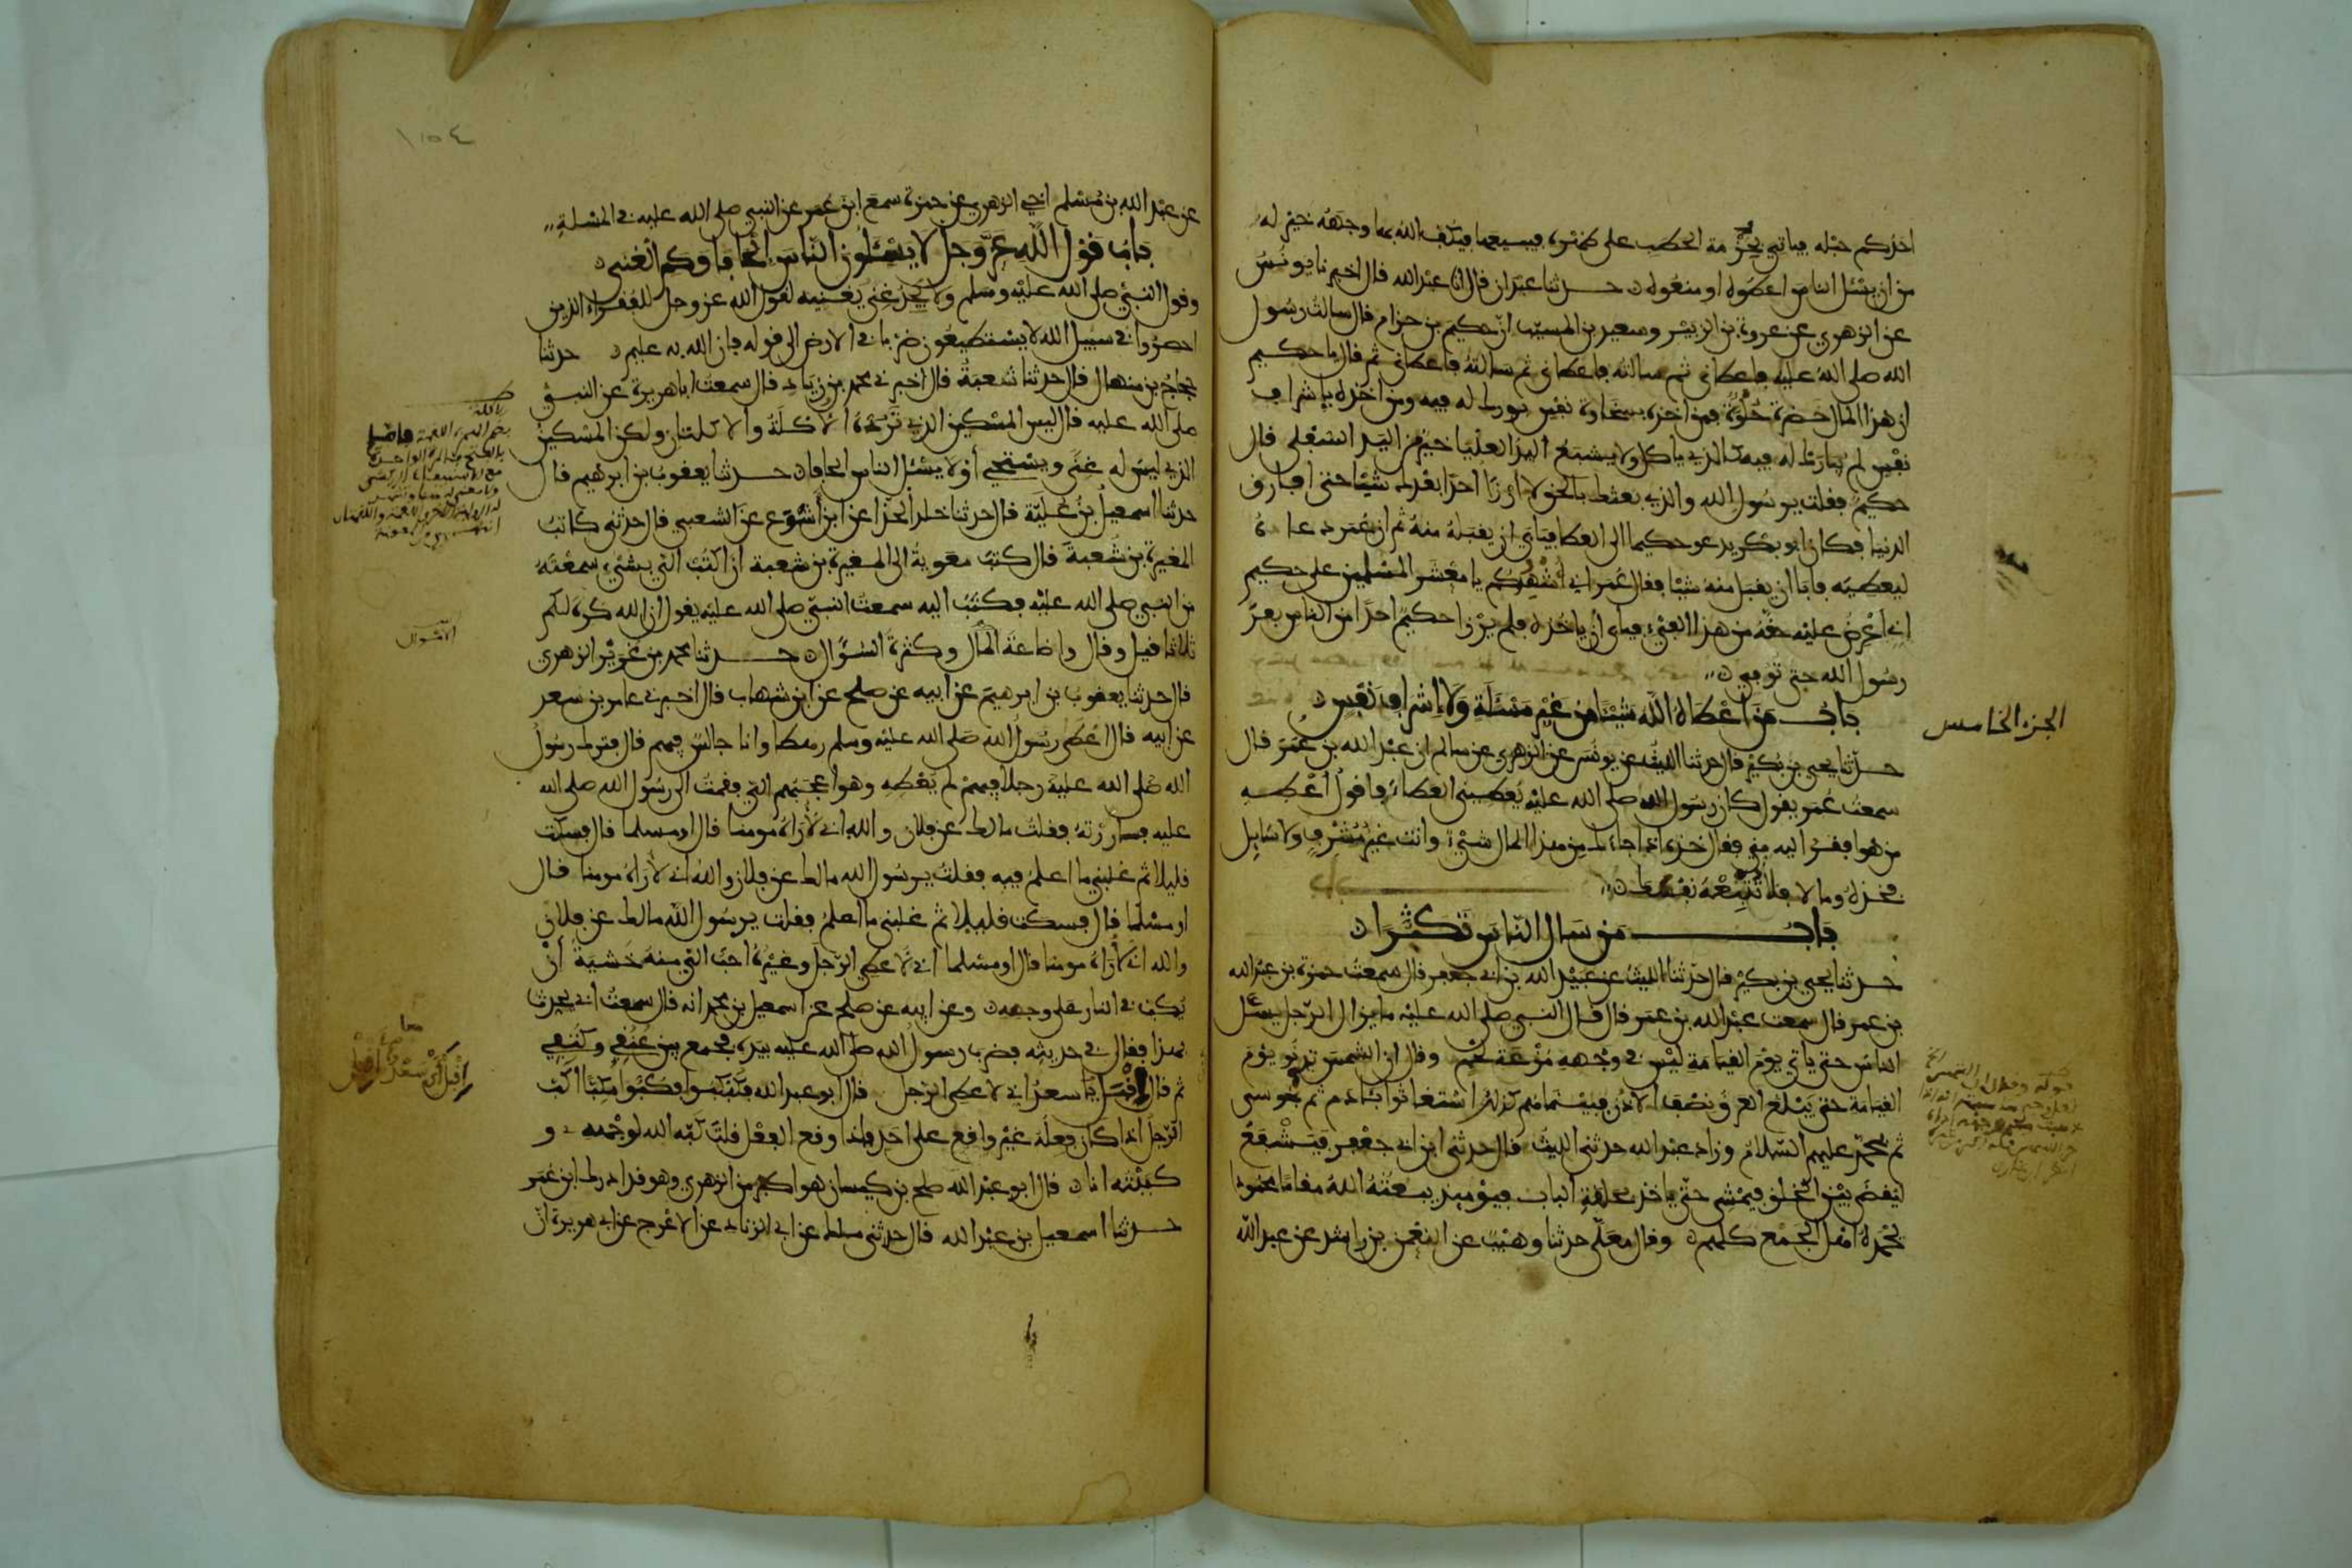 احدكم حبله فياتي بحزمة الحطب على ظهره فيبيعها فيكف الله بها وجهه خير له
من ان يسئل الناس اعطوه او منعوه حدثنا عبدان قال انا عبد الله قال اخبرنا يونس
عن الزهري عن عروة بن الزبير وسعيد بن المسيب ان حكيم بن حزام قال سالت رسول
الله صلى الله عليه فاعطاني ثم سالته فاعطاني ثم سالته فاعطاني ثم قال يا حكيم
ان هذا المال خضرة حلوة فمن اخذه بسخاوة نفس بورك له فيه ومن اخذه باشراف
نفس لم يبارك له فيه كالذي ياكل ولا يشبع اليد العليا خير من اليد السفلى قال
حكيم فقلت يرسول الله والذي بعثك بالحق لا ارزا احدا بعدك شيئا حتى افارق
الدنيا فكان ابو بكر يدعو حكيما الى العطا فيابى ان يقبله منه ثم ان عمر دعاه
ليعطيه فابا ان يقبل منه شيئا فقال عمر اني اشهدكم يا معشر المسلمين على حكيم
اني اعرض عليه حقه من هذا الفيء فيابى ان ياخذه فلم يرزا حكيم احدا من الناس بعد
رسول الله حتى توفي
باب من اعطاه الله شيئا من غير مسئلة ولا اشراف نفس
الجزء الخامس
حدثنا يحيى بن بكير قال حدثنا الليث عن يونس عن الزهري عن سالم ان عبد الله بن عمر قال
سمعت عمر يقول كان رسول الله صلى الله عليه يعطيني العطاء فاقول اعطه
من هو افقر اليه مني فقال خذه اذا جاءك من هذا المال شيء وانت غير مشرف ولا سايل
فخذه وما لا فلا تتبعه نفسك
باب من سال الناس تكثرا
حدثنا يحيى بن بكير قال حدثنا الليث عن عبيد الله بن ابي جعفر قال سمعت حمزة بن عبد الله
بن عمر قال سمعت عبد الله بن عمر قال قال النبي صلى الله عليه ما يزال الرجل يسئل
الناس حتى ياتي يوم القيامة ليس في وجهه مزعة لحم وقال ان الشمس تدنو يوم
القيامة حتى يبلغ العرق نصف الاذن فبينما هم كذلك استغاثوا بئادم ثم بموسى
ثم بمحمد عليهم السلام وزاد عبد الله حدثني الليث قال حدثني ابن ابي جعفر فيشفع
ليقضى بين الخلق فيمشي حتى ياخذ بحلقة الباب فيومئذ يبعثه الله مقاما محمودا
يحمده اهل الجمع كلهم وقال معلى حدثنا وهيب عن النعمن بن راشد عن عبد الله
١٥٤
عن عبد الله بن مسلم اخي الزهري عن حمزة سمع ابن عمر عن النبي صلى الله عليه في المسئلة
باب قول الله عز وجل لا يسئلون الناس الحافا وكم الغنى
وقول النبي صلى الله عليه وسلم ولا يجد غنى يغنيه لقول الله عز وجل للفقراء الذين
احصروا في سبيل الله لا يستطيعون ضربا في الارض الى قوله فان الله به عليم حدثنا
حجاج بن منهال قال حدثنا شعبة قال اخبرني محمد بن زياد قال سمعت ابا هريرة عن النبي
صلى الله عليه قال ليس المسكين الذي ترده الاكلة والاكلتان ولكن المسكين
الذي ليس له غنى ويستحي او لا يسئل الناس الحافا حدثنا يعقوب بن ابرهيم قال
حدثنا اسمعيل بن علية قال حدثنا خلد الحذا عن ابن اشوع عن الشعبي قال حدثني كاتب
المغيرة بن شعبة قال كتب معوية الى المغيرة بن شعبة ان اكتب الي بشيء سمعته
من النبي صلى الله عليه فكتب اليه سمعت النبي صلى الله عليه يقول ان الله كره لكم
ثلاثا قيل وقال واضاعة المال وكثرة السؤال حدثنا محمد بن غرير الزهري
السؤال
قال حدثنا يعقوب بن ابرهيم عن ابيه عن صلح عن ابن شهاب قال اخبرني عامر بن سعد
عن ابيه قال اعطى رسول الله صلى الله عليه وسلم رهطا وانا جالس فيهم قال فترك رسول
الله صلى الله عليه رجلا فيهم لم يعطه وهو اعجبهم الي فقمت الى رسول الله صلى الله
عليه فساررته فقلت مالك عن فلان والله اني لاراه مومنا قال او مسلما قال فسكت
قليلا ثم غلبني ما اعلم فيه فقلت يرسول الله مالك عن فلان والله اني لاراه مومنا قال
او مسلما قال فسكت قليلا ثم غلبني ما اعلم فقلت يرسول الله مالك عن فلان
والله اني لاراه مومنا قال او مسلما اني لاعطي الرجل وغيره احب الي منه خشية ان
يكب في النار على وجهه وعن ابيه عن صلح عن اسمعيل بن محمد انه قال سمعت ابي يحدث
بهذا فقال في حديثه فضرب رسول الله صلى الله عليه بيده فجمع بين عنقي وكتفي
ثم قال اقبل يا سعد اني لاعطي الرجل قال ابو عبد الله فكبكبوا فكبوا مكبا اكب
الرجل اذا كان فعله غير واقع على احد فاذا وقع الفعل قلت كبه الله لوجهه و
كببته انا قال ابو عبد الله صلح بن كيسان هو اكبر من الزهري وهو قد ادرك ابن عمر
حدثنا اسمعيل بن عبد الله قال حدثني ملك عن ابي الزناد عن الاعرج عن ابي هريرة ان